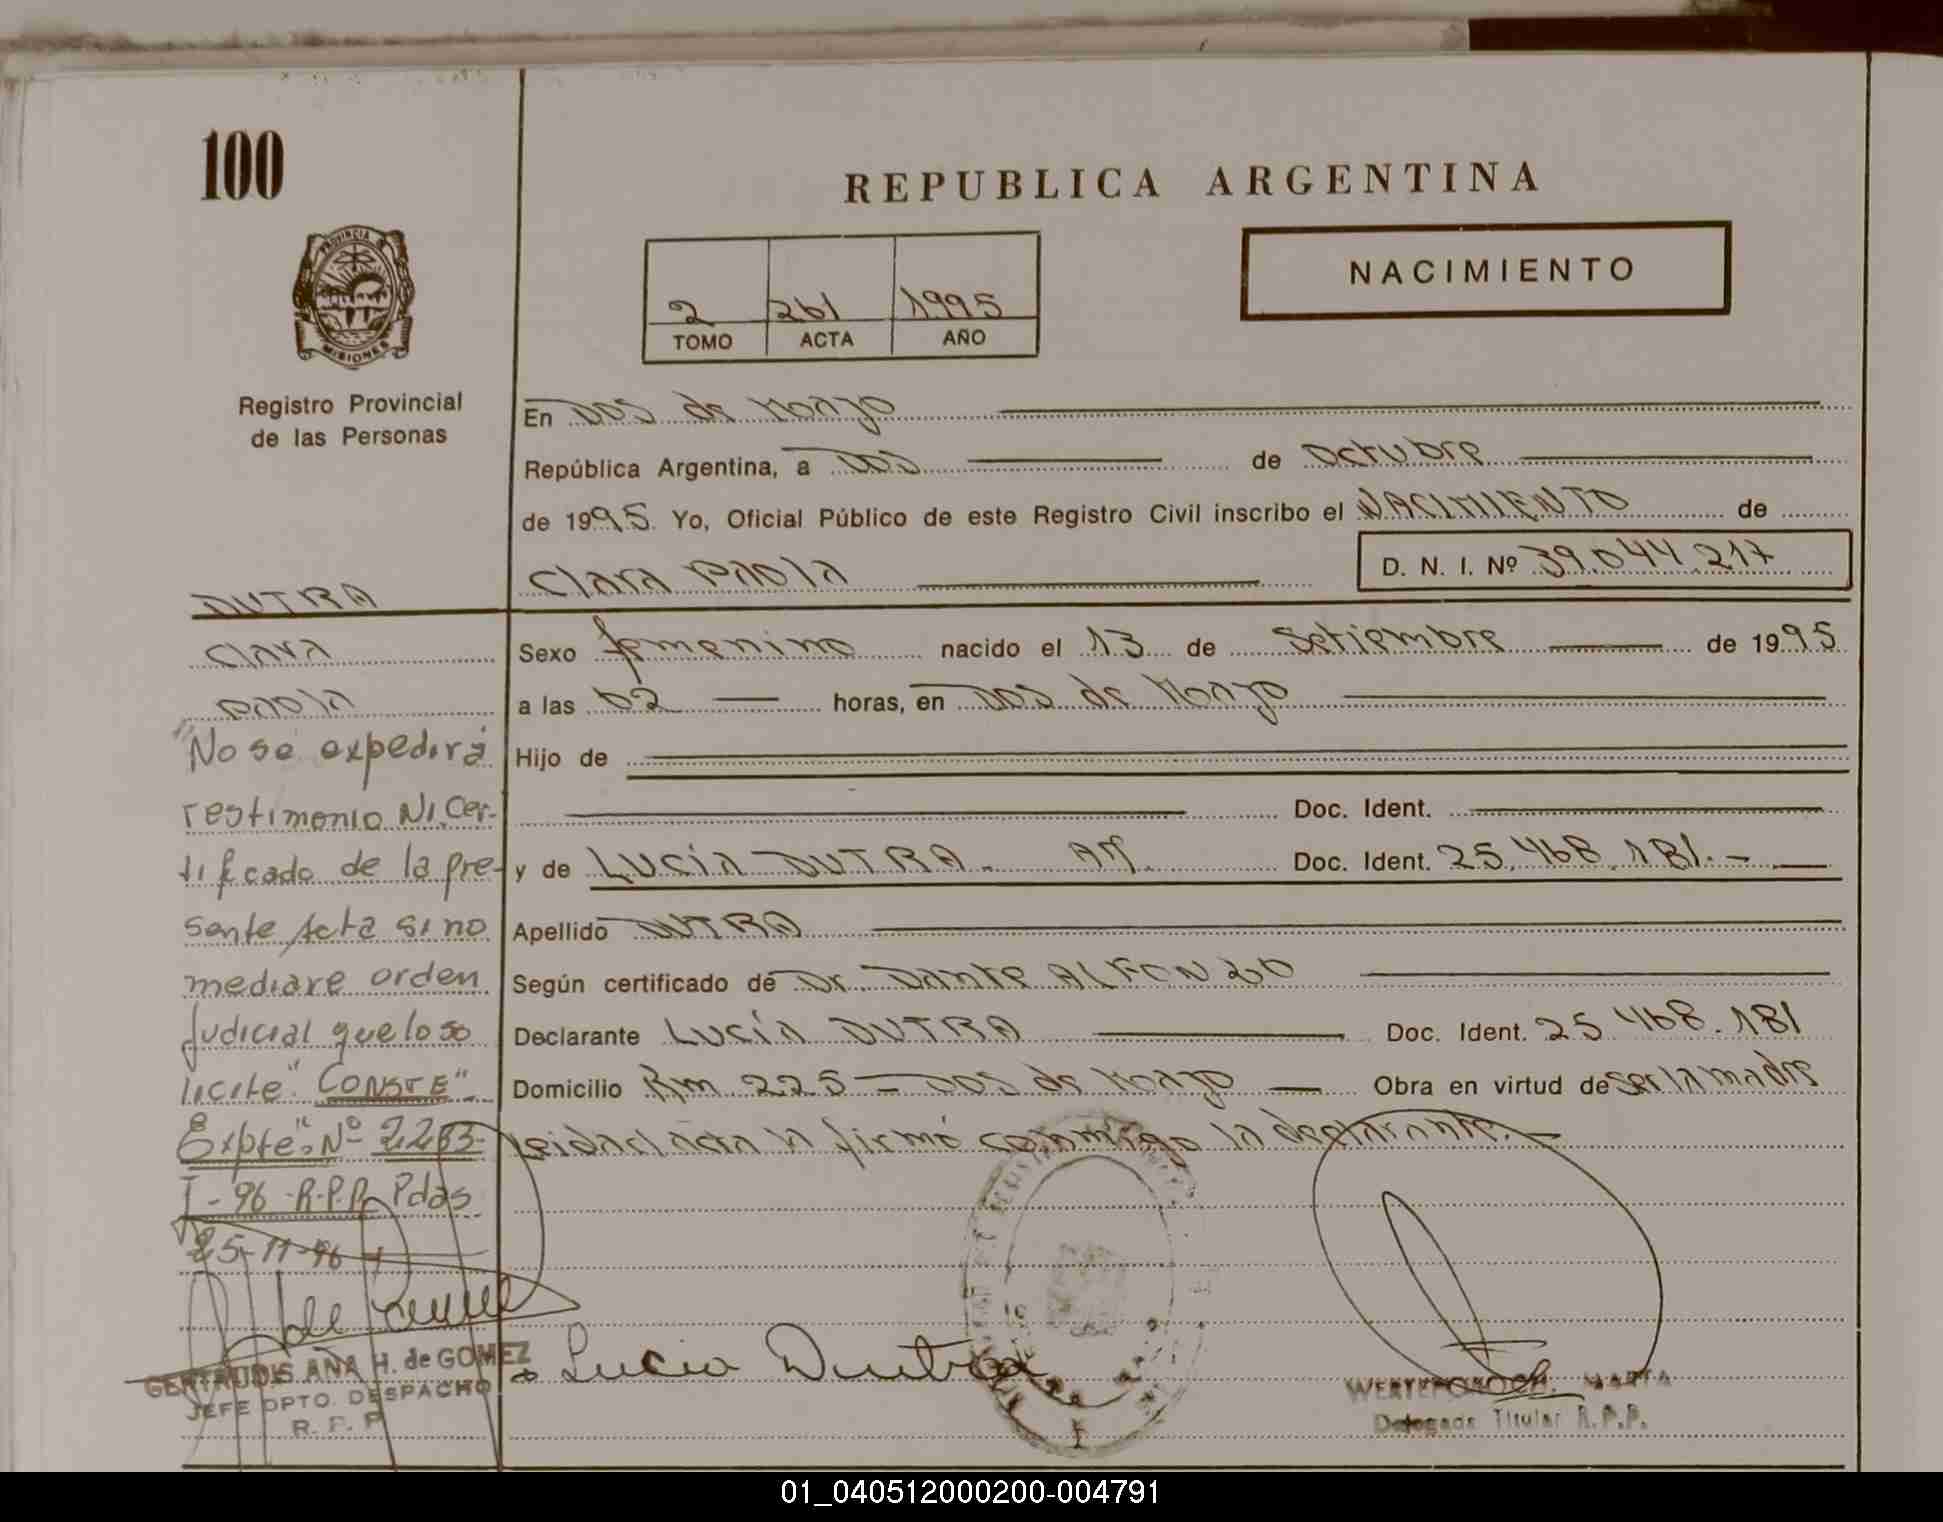 100
REPUBLICA ARGENTINA
PROVINCIA DE
MISIONES
Registro Provincial
de las Personas
NACIMIENTO
2 261 1995
TOMO ACTA AÑO
En DOS de Mayo
República Argentina, a DOS de Octubre
de 1995. Yo, Oficial Público de este Registro Civil inscribo el NACIMIENTO de
Clara PAOLA D. N. I. Nº 39.044.217
DUTRA
Clara
PAOLA
"No se expedirá
testimonio Ni Cer-
tificado de la pre-
sente Acta si no
mediare orden
Judicial que lo so
licite". CONSTE"
Expte": Nº 2283-
I-96-R.P.P. Pdas
25-11-96
GERTRUDIS ANA H. de GOMEZ
JEFE DPTO. DESPACHO
R. P. P.
Sexo femenino nacido el 13 de Setiembre de 1995
a las 02 horas, en DOS de Mayo
Hijo de
Doc. Ident.
y de LUCÍA DUTRA. Doc. Ident. 25.468.181.-
Apellido DUTRA
Según certificado de Dr. Dante ALFONZO
Declarante LUCÍA DUTRA Doc. Ident. 25.468.181
Domicilio Km 225 - DOS de Mayo Obra en virtud de ser la madre
Leida el acta la firmó conmigo la declarante.-
Lucia Dutra
MARTA
Delegada Titular R.P.P.
01_040512000200-004791